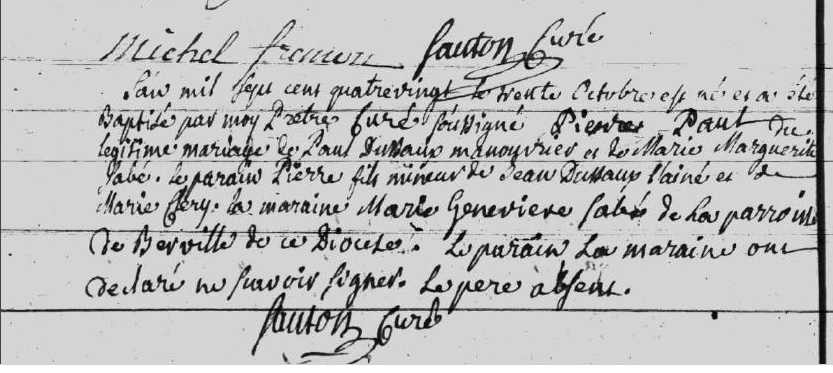 Michel fremon fauton Curé
L'an mil sept cent quatrevingt le trente Octobre est né et a été
Baptisé par moy Prêtre Curé soussigné Pierre Paul du
legitime mariage de Paul Dussaux manouvrier et de Marie Marguerite
Sabé. le parain Pierre fils mineur de Jean Dussaux l'ainé et de
Marie Clery. la maraine Marie Genevieve Sabé de La parroisse
de Berville de ce Diocese. Le parain La maraine ont
declaré ne savoir signer. Le pere absent.
fauton Curé